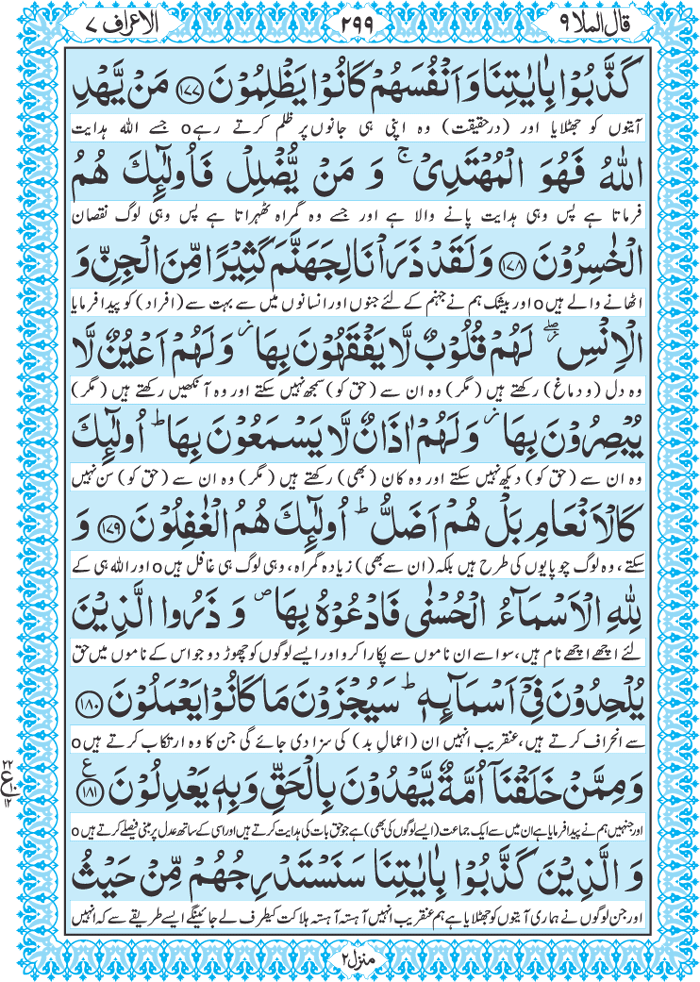 قال الملا ۹
۲۹۹
الاعراف ۷
كَذَّبُوْا بِاٰيٰتِنَا وَ اَنْفُسَهُمْ كَانُوْا يَظْلِمُوْنَ ﴿۱۷۷﴾ مَنْ يَّهْدِ
آیتوں کو جھٹلایا اور (درحقیقت) وہ اپنی ہی جانوں پر ظلم کرتے رہے o جسے اللہ ہدایت
اللّٰهُ فَهُوَ الْمُهْتَدِيْ ۚ وَ مَنْ يُّضْلِلْ فَاُولٰٓئِكَ هُمُ
فرماتا ہے پس وہی ہدایت پانے والا ہے اور جسے وہ گمراہ ٹھہراتا ہے پس وہی لوگ نقصان
الْخٰسِرُوْنَ ﴿۱۷۸﴾ وَ لَقَدْ ذَرَاْنَا لِجَهَنَّمَ كَثِيْرًا مِّنَ الْجِنِّ وَ
اٹھانے والے ہیں o اور بیشک ہم نے جہنم کے لئے جنوں اور انسانوں میں سے بہت سے (افراد) کو پیدا فرمایا
الْاِنْسِ ۖ لَهُمْ قُلُوْبٌ لَّا يَفْقَهُوْنَ بِهَا ؗ وَ لَهُمْ اَعْيُنٌ لَّا
وہ دل (و دماغ) رکھتے ہیں (مگر) وہ ان سے (حق کو) سمجھ نہیں سکتے اور وہ آنکھیں رکھتے ہیں (مگر)
يُبْصِرُوْنَ بِهَا ؗ وَ لَهُمْ اٰذَانٌ لَّا يَسْمَعُوْنَ بِهَا ؕ اُولٰٓئِكَ
وہ ان سے (حق کو) دیکھ نہیں سکتے اور وہ کان (بھی) رکھتے ہیں (مگر) وہ ان سے (حق کو) سن نہیں
كَالْاَنْعَامِ بَلْ هُمْ اَضَلُّ ؕ اُولٰٓئِكَ هُمُ الْغٰفِلُوْنَ ﴿۱۷۹﴾ وَ
سکتے، وہ لوگ چوپایوں کی طرح ہیں بلکہ (ان سے بھی) زیادہ گمراہ، وہی لوگ ہی غافل ہیں o اور اللہ ہی کے
لِلّٰهِ الْاَسْمَآءُ الْحُسْنٰى فَادْعُوْهُ بِهَا ۪ وَ ذَرُوا الَّذِيْنَ
لئے اچھے اچھے نام ہیں، سو اسے ان ناموں سے پکارا کرو اور ایسے لوگوں کو چھوڑ دو جو اس کے ناموں میں حق
يُلْحِدُوْنَ فِيْۤ اَسْمَآىِٕهٖ ؕ سَيُجْزَوْنَ مَا كَانُوْا يَعْمَلُوْنَ ﴿۱۸۰﴾
سے انحراف کرتے ہیں، عنقریب انہیں ان (اعمالِ بد) کی سزا دی جائے گی جن کا وہ ارتکاب کرتے ہیں o
وَ مِمَّنْ خَلَقْنَاۤ اُمَّةٌ يَّهْدُوْنَ بِالْحَقِّ وَ بِهٖ يَعْدِلُوْنَ ﴿۱۸۱﴾ ع
۲۲ ع ۱۰ ۱۲
اور جنہیں ہم نے پیدا فرمایا ہے ان میں سے ایک جماعت (ایسے لوگوں کی بھی) ہے جو حق بات کی ہدایت کرتے ہیں اور اسی کے ساتھ عدل پر مبنی فیصلے کرتے ہیں o
وَ الَّذِيْنَ كَذَّبُوْا بِاٰيٰتِنَا سَنَسْتَدْرِجُهُمْ مِّنْ حَيْثُ
اور جن لوگوں نے ہماری آیتوں کو جھٹلایا ہے ہم عنقریب انہیں آہستہ آہستہ ہلاکت کیطرف لے جائینگے ایسے طریقے سے کہ انہیں
منزل ۲